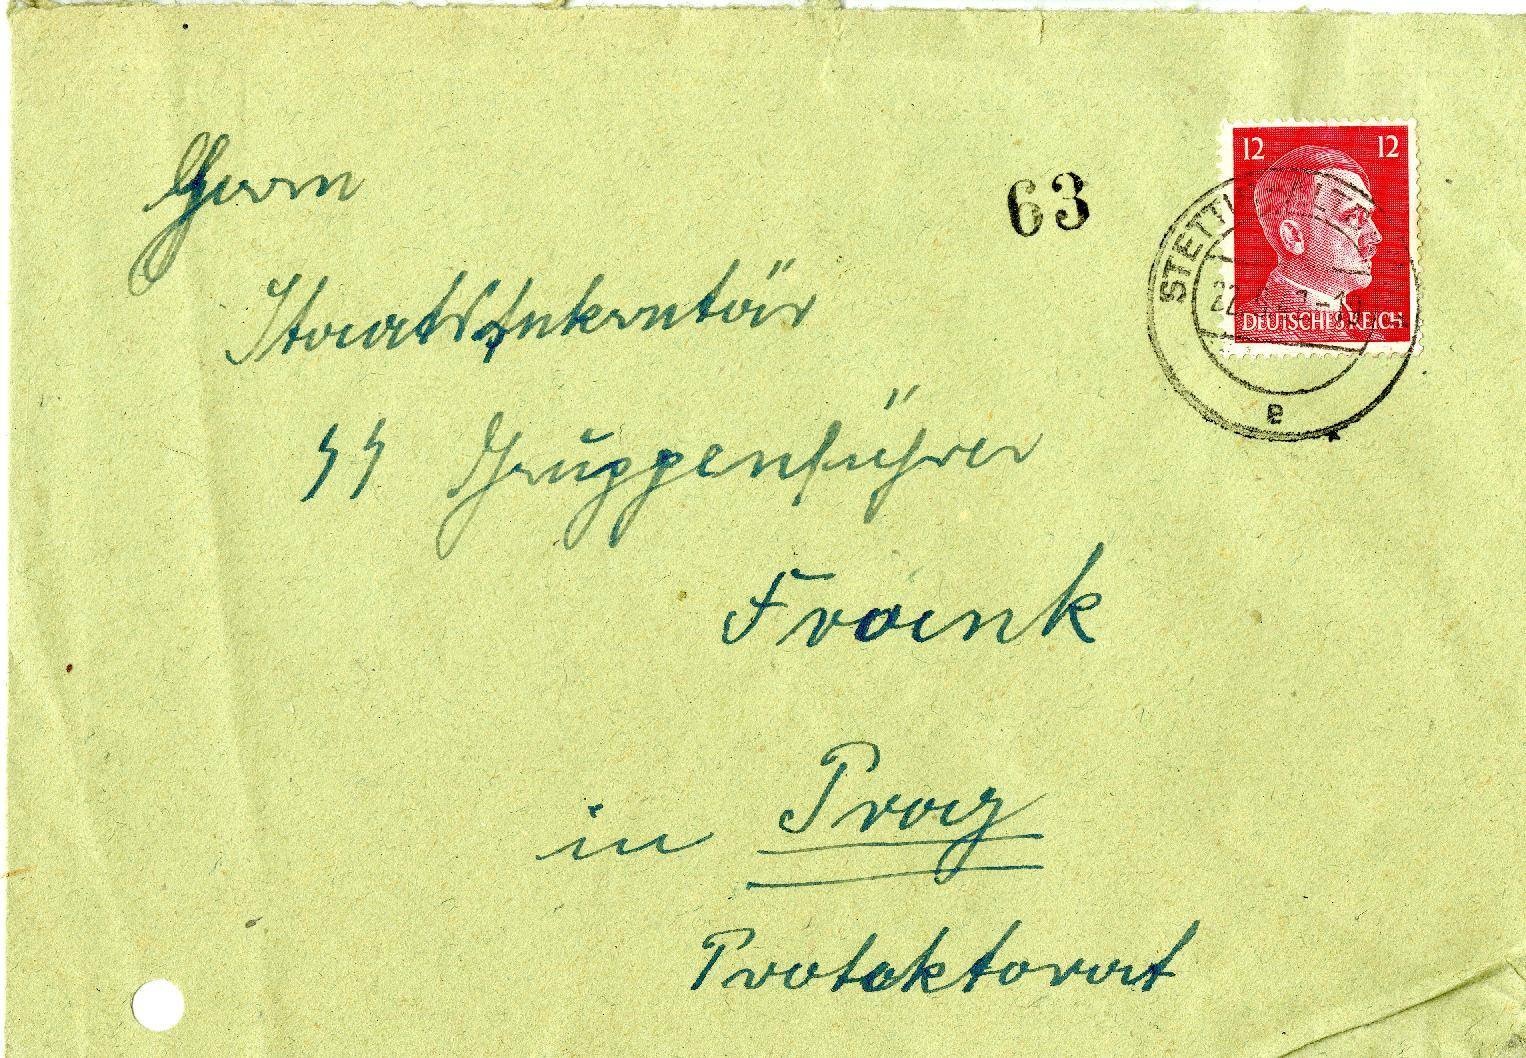 Herrn
Staatssekretär
SS Gruppenführer
Frank
in Prag
Protektorat
63
12 12
DEUTSCHES REICH
STETTIN
e